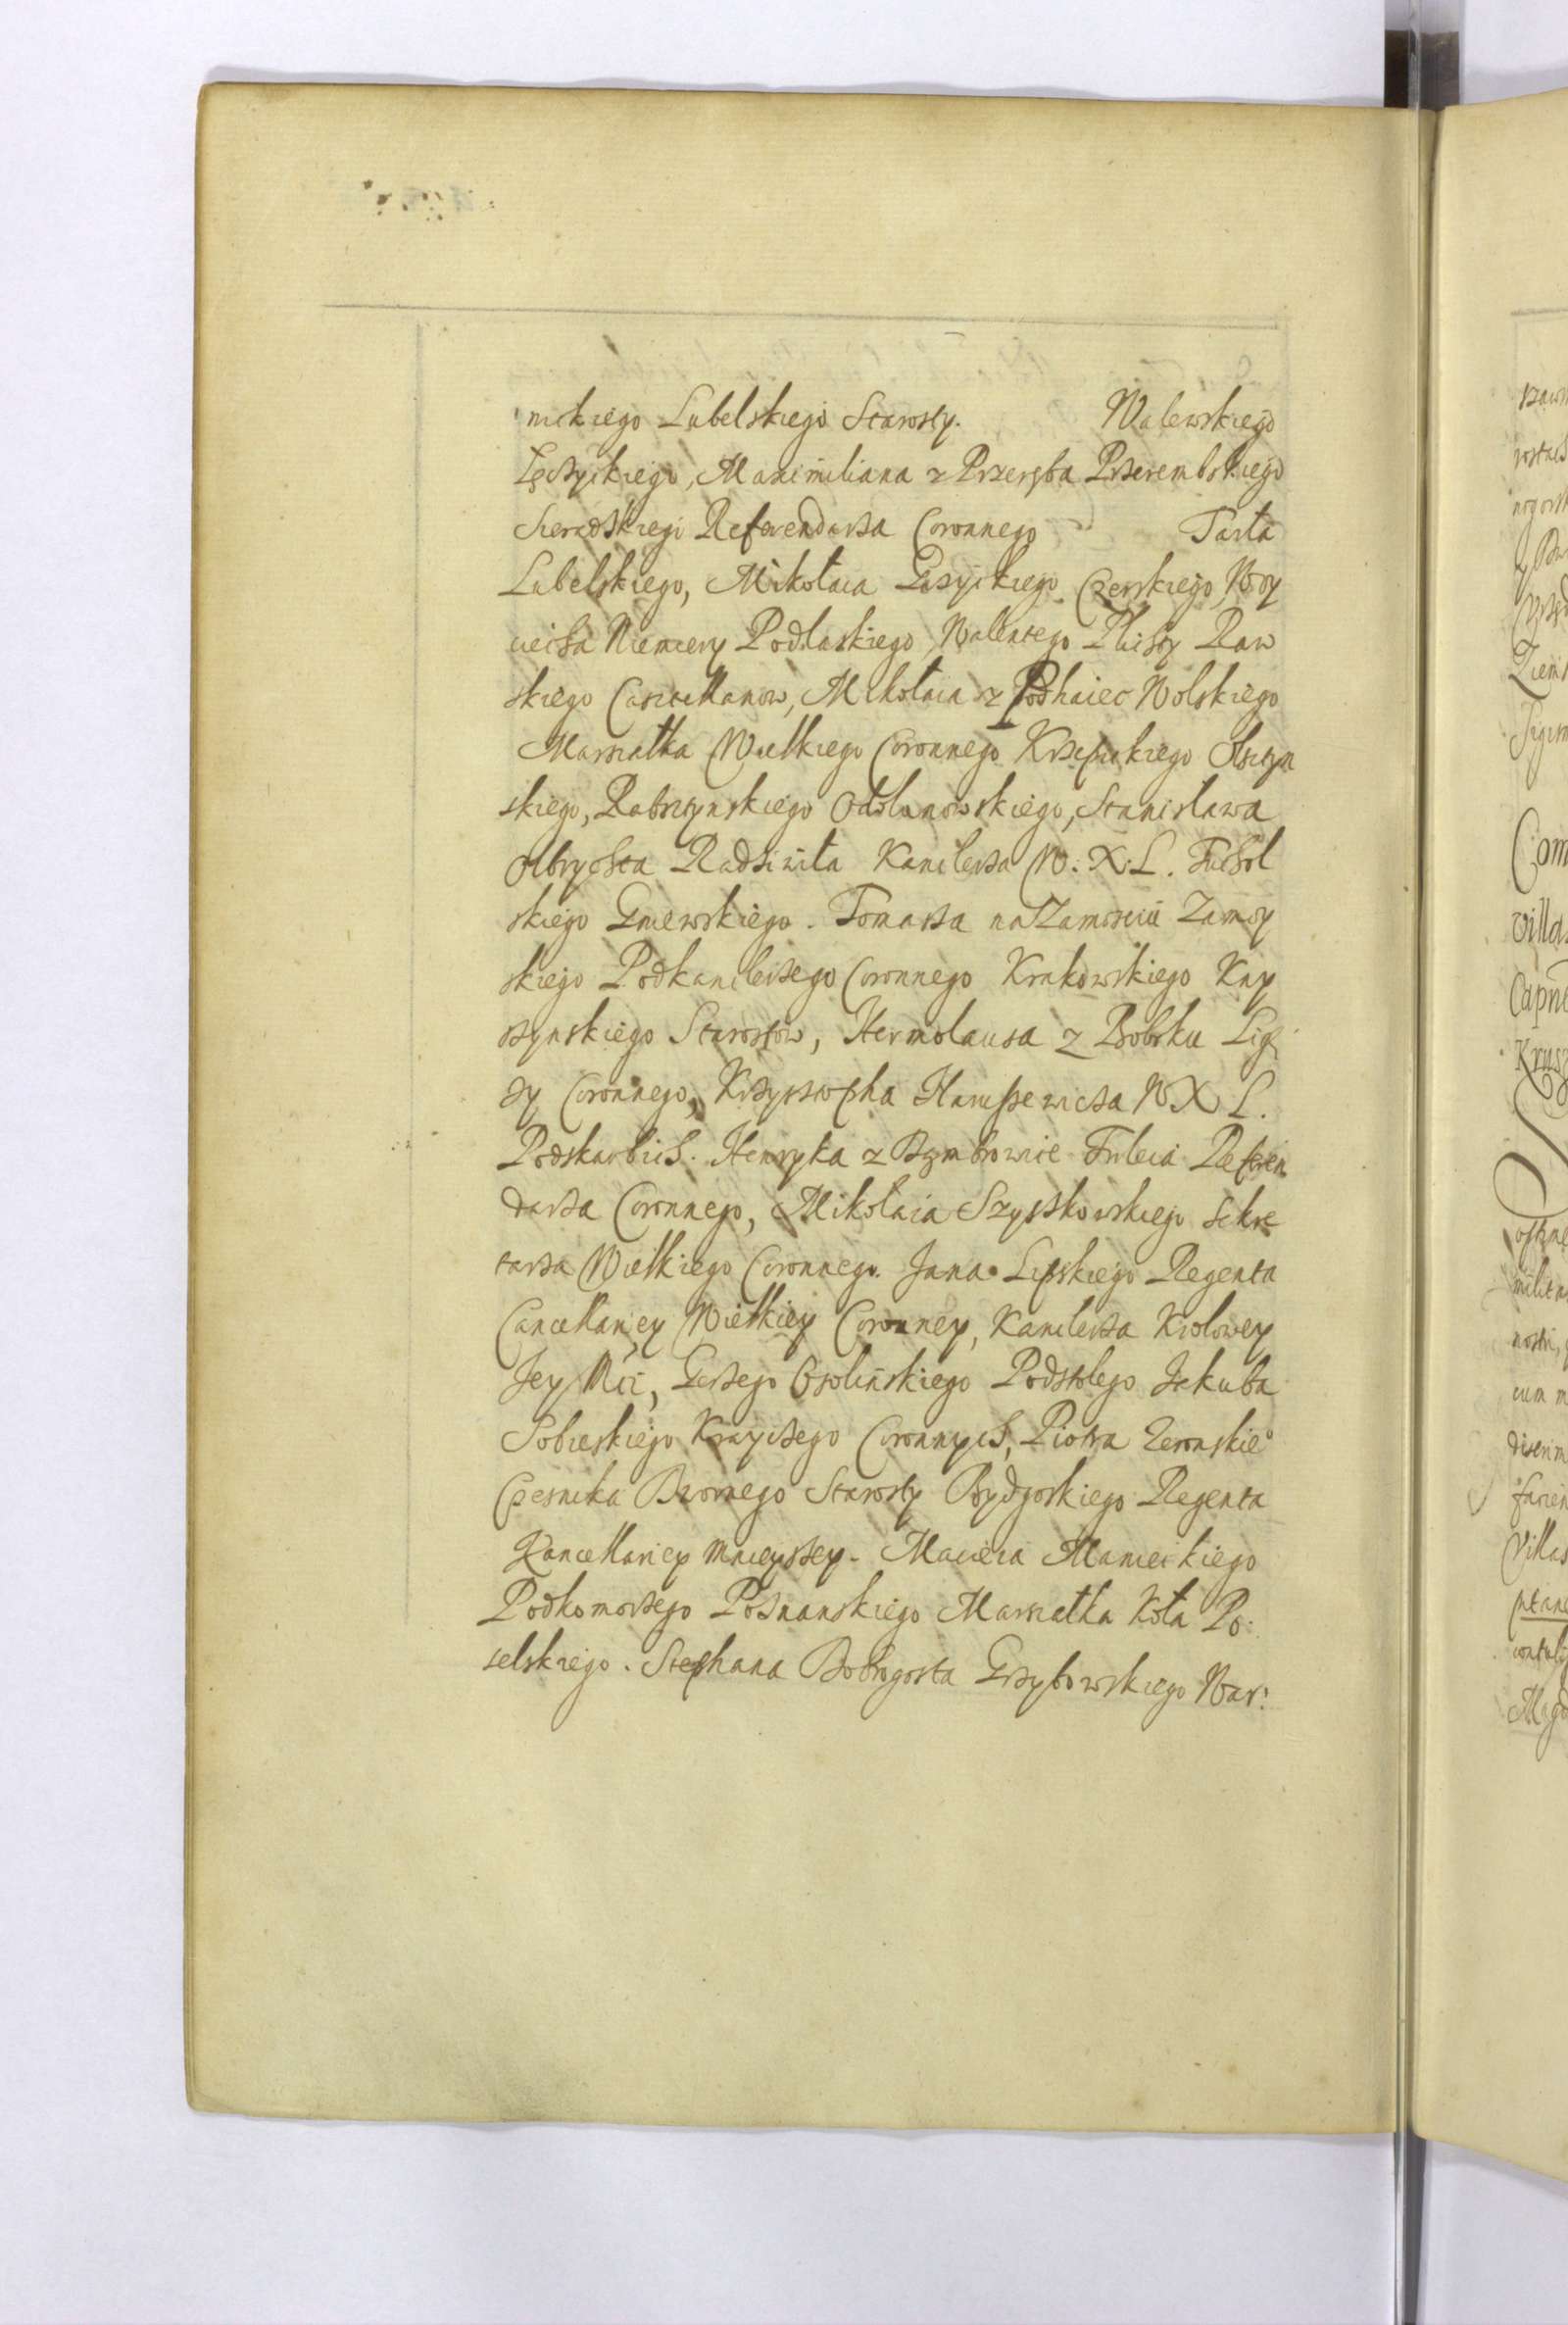 nickiego Lubelskiego Starosty. Walewskiego
Łęczyckiego, Maximiliana z Przeręba Przerembskiego
Sieradzkiego Referendarza Coronnego Tarła
Lubelskiego, Mikołaia Grzyckiego Czerskiego, Woy
ciecha Niemiery Podlaskiego, Walentego Plichty Raw
skiego Casztellanow, Mikołaia z Podhaiec Wolskiego
Marszałka Wielkiego Coronnego Krzepickiego Olsztyn
skiego, Rabsztynskiego Odolanowskiego, Stanisława
Olbrychta Radziwiła Kanclerza W. X. L. Tuchol
skiego Gniewskiego. Tomasza na Zamosciu Zamoy
skiego Podkanclerzego Coronnego Krakowskiego Kny
szynskiego Starostow, Hermolausa z Bobrku Ligę
zy Coronnego, Krzysztopha Naruszewicza W X L.
Podskarbich. Henryka z Firleia Referen
darza Coronnego, Mikołaia Szyszkowskiego Sekre
tarza Wielkiego Coronnego. Jana Lipskiego Regenta
Cancellaryey Wielkiey Coronney, Kanclerza Krolowey
Jey Mci, Gerzego Osolińskiego Podstolego Jakuba
Sobieskiego Krayczego Coronnych, Piotra Zeronskie°
Czesnika Dwornego Starosty Bydgoskiego Regenta
Kancellariey mnieyszey. Macieia Manieckiego
Podkomorzego Poznanskiego Marszałka Koła Po:
selskiego. Stephana Dobrogosta Grzybowskiego War: